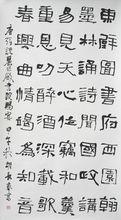 東壁圖書府西園翰
墨林誦詩聞國政講
易見天心位竊和羹
重恩叨醉酒深載歌
春興曲情竭為知音
甲午秋